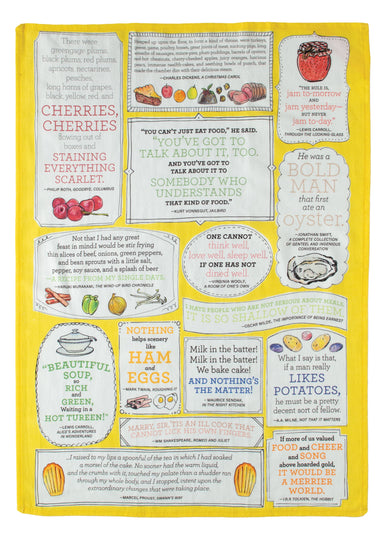 There were
greengage plums,
black plums; red plums,
apricots, nectarines,
peaches,
long horns of grapes,
black, yellow, red, and
CHERRIES,
CHERRIES
flowing out of
boxes and
STAINING
EVERYTHING
SCARLET.
—PHILIP ROTH, GOODBYE, COLUMBUS
Heaped up upon the floor, to form a kind of throne, were turkeys,
geese, game, poultry, brawn, great joints of meat, sucking-pigs, long
wreaths of sausages, mince-pies, plum-puddings, barrels of oysters,
red-hot chestnuts, cherry-cheeked apples, juicy oranges, luscious
pears, immense twelfth-cakes, and seething bowls of punch, that
made the chamber dim with their delicious steam.
—CHARLES DICKENS, A CHRISTMAS CAROL
"THE RULE IS,
jam to-morrow
and
jam yesterday—
BUT NEVER
jam to-day."
—LEWIS CARROLL,
THROUGH THE LOOKING-GLASS
"YOU CAN'T JUST EAT FOOD," HE SAID.
"YOU'VE GOT TO
TALK ABOUT IT, TOO.
AND YOU'VE GOT TO
TALK ABOUT IT TO
SOMEBODY WHO
UNDERSTANDS
THAT KIND OF FOOD."
—KURT VONNEGUT, JAILBIRD
He was a
BOLD
MAN
that first
ate an
oyster.
—JONATHAN SWIFT,
A COMPLETE COLLECTION
OF GENTEEL AND INGENIOUS
CONVERSATION
Not that I had any great
feast in mind. I would be stir frying
thin slices of beef, onions, green peppers,
and bean sprouts with a little salt,
pepper, soy sauce, and a splash of beer
—A RECIPE FROM MY SINGLE DAYS.
—HARUKI MURAKAMI, THE WIND-UP BIRD CHRONICLE
ONE CANNOT
think well,
love well, sleep well,
IF ONE HAS NOT
dined well.
—VIRGINIA WOOLF,
A ROOM OF ONE'S OWN
I HATE PEOPLE WHO ARE NOT SERIOUS ABOUT MEALS.
IT IS SO SHALLOW OF THEM.
—OSCAR WILDE, THE IMPORTANCE OF BEING EARNEST
"BEAUTIFUL
SOUP,
so
RICH
and
GREEN,
Waiting in a
HOT TUREEN!"
—LEWIS CARROLL,
ALICE'S ADVENTURES
IN WONDERLAND
NOTHING
helps scenery
like
HAM
and
EGGS.
—MARK TWAIN, ROUGHING IT
Milk in the batter!
Milk in the batter!
We bake cake!
AND NOTHING'S
THE MATTER!
—MAURICE SENDAK,
IN THE NIGHT KITCHEN
What I say is that,
if a man really
LIKES
POTATOES,
he must be a pretty
decent sort of fellow.
—A.A. MILNE, NOT THAT IT MATTERS
MARRY, SIR, 'TIS AN ILL COOK THAT
CANNOT LICK HIS OWN FINGERS.
—WM SHAKESPEARE, ROMEO AND JULIET
...I raised to my lips a spoonful of the tea in which I had soaked
a morsel of the cake. No sooner had the warm liquid,
and the crumbs with it, touched my palate than a shudder ran
through my whole body, and I stopped, intent upon the
extraordinary changes that were taking place.
—MARCEL PROUST, SWANN'S WAY
If more of us valued
FOOD and CHEER
and SONG
above hoarded gold,
IT WOULD BE
A MERRIER
WORLD.
—J.R.R. TOLKIEN, THE HOBBIT